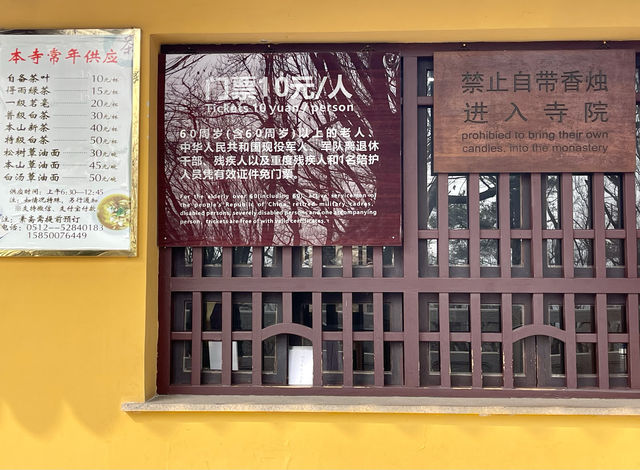 本寺常年供应
茶
自备茶叶 10元/杯
得雨绿茶 15元/杯
一级茗毫 20元/杯
普级袋茶 30元/杯
本山新茶 40元/杯
特级袋茶 50元/杯
松树蕈油面 30元/碗
本山蕈油面 45元/碗
白汤蕈油面 50元/碗
供应时间：上午6:30—12:45
注：如情况特殊，另行通知
支持微信、支付宝付款
注：素斋需提前预订
电话：0512—52840183
15850076449
门票10元/人
Tickets 10 yuan / person
60周岁(含60周岁)以上的老人、
中华人民共和国现役军人、军队离退休
干部、残疾人以及重度残疾人和1名陪护
人员凭有效证件免门票。
For the elderly over 60(including 60), active servicemen of
the people's Republic of China, retired military cadres,
disabled persons, severely disabled persons and one accompanying
person, tickets are free of with valid certificates.
禁止自带香烛
进入寺院
prohibied to bring their own
candles, into the monastery